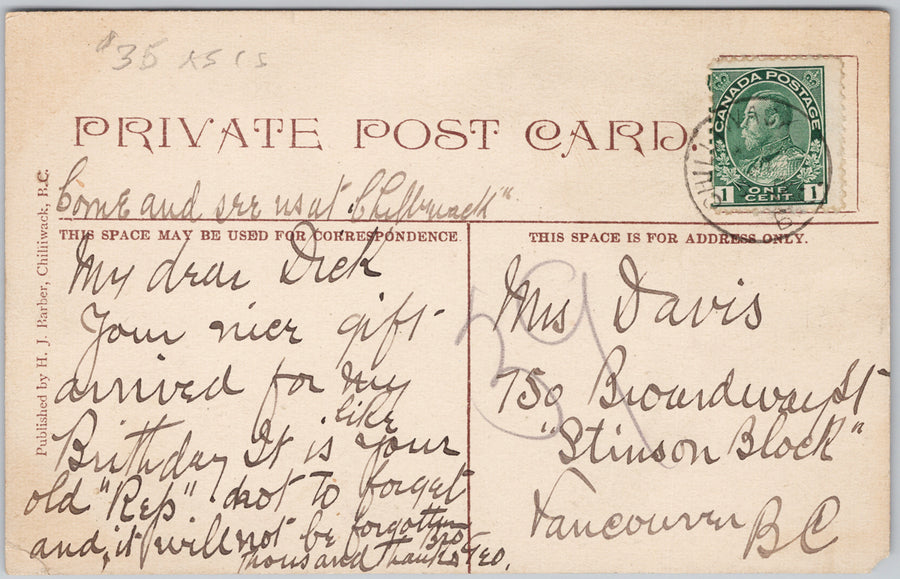 $35
PRIVATE POST CARD
CANADA POSTAGE
1 ONE CENT 1
Come and see us at "Chilliwack"
THIS SPACE MAY BE USED FOR CORRESPONDENCE
THIS SPACE IS FOR ADDRESS ONLY.
Published by H. J. Barber, Chilliwack, B.C.
My dear Dick
Your nice gift
arrived for my
Birthday It is like your
old "Rep" not to forget
and, it will not be forgotten
thousand thanks Bro Geo.
39
Mrs Davis
750 Broardway St
"Stinson Block"
Vancouver
BC